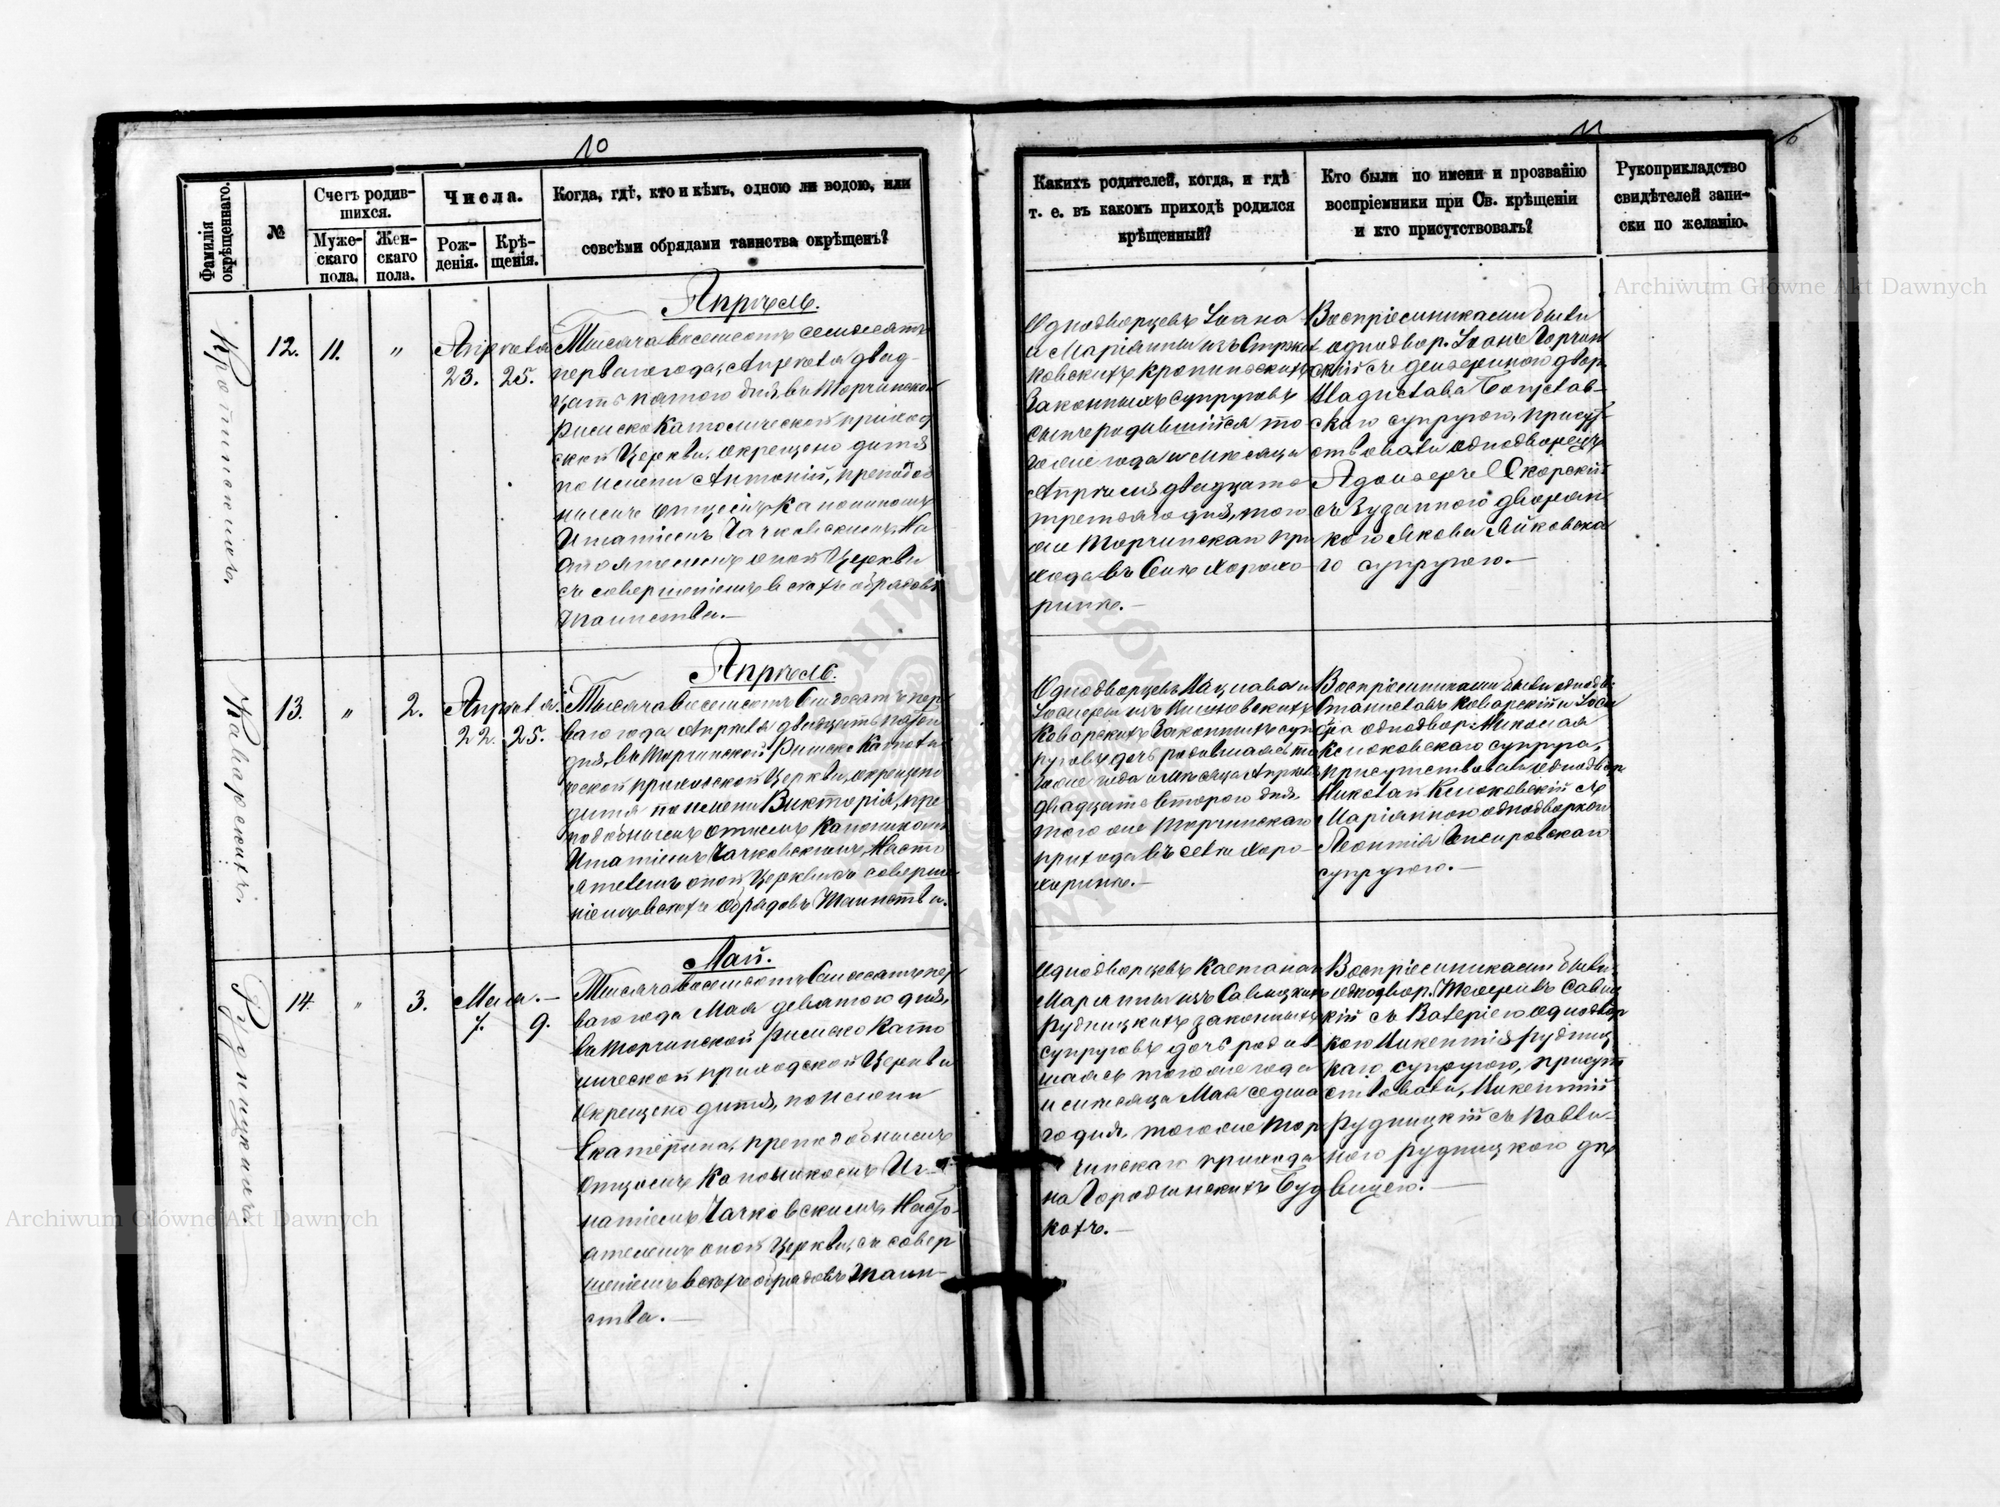 10
Фамилія окрѣщеннаго.
№
Счетъ родив-
шихся.
Муже-
скаго
пола.
Жен-
скаго
пола.
Числа.
Рож-
денія.
Крѣ-
щенія.
Когда, гдѣ, кто и кѣмъ, одною ли водою, или
совсѣми обрядами таинства окрѣщенъ?
12.
11.
"
Апрѣля
23. 25.
Апрѣль.
Тысяча восемсотъ семдесятъ
перваго года, Апрѣля двад-
цать пятого дня, въ Торчинской
Римско Католической приход
ской Церкви, окрещено дитя
по имени Антоній, преподоб
нымъ отцемъ Каноникомъ
Игнатіемъ Чачковскимъ, На
стоятелемъ оной Церкви
съ совершеніемъ всехъ обрядовъ
Таинства.—
Коварскихъ
13.
"
2.
Апрѣля
22. 25.
Апрѣль.
Тысяча восемсотъ Семдесятъ пер
ваго года, Апрѣля двадцать пятого
дня, въ Торчинской Римско Католи
ческой приходской Церкви, окрещено
дитя по имени Викторія, пре
подобнымъ отцемъ Каноникомъ
Игнатіемъ Чачковскимъ, Насто
ятелемъ оной Церкви съ соверше
ніемъ всехъ обрядовъ Таинства.
Рудницкихъ
14.
"
3.
Мая.—
7. 9.
Май.
Тысяча восемсотъ Семдесятъ пер
ваго года Мая девятого дня,
въ Торчинской Римско Като
лической приходской Церкви
окрещено дитя, по имени
Екатерина, преподобнымъ
Отцомъ Каноникомъ Иг
натіемъ Чачковскимъ, Насто-
ятелемъ оной Церкви, съ совер
шеніемъ всехъ обрядовъ Таин-
ства.—
11
6
Какихъ родителей, когда, и гдѣ
т. е. въ какомъ приходѣ родился
крѣщенный?
Кто были по имени и прозванію
воспріемники при Св. крѣщеніи
и кто присутствовалъ?
Рукоприкладство
свидѣтелей запи-
ски по желанію.
Однодворцевъ Іоана
и Маріанны изъ
законныхъ супруговъ
сынъ родившійся то
гоже года и месяца
Апрѣля двадцать
третьяго дня, того
же Торчинскаго при
хода въ Селе Хорохо
рине.—
Воспріемниками были
однодвор. Іоанъ
супругою, присут-
ствовали однодворецъ
съ Зузанною дворян
кого Якова
го супругою.—
Однодворцевъ и
Коварскихъ законныхъ суп
руговъ дочь родившаяся то
гоже года и месяца Апрѣля
двадцать второго дня
того же Торчинскаго
прихода въ селе Хоро
хорине.—
Воспріемниками были однодв.
Станиславъ Коварскій и
однодвор. Николая
супруга,
присутствовали однодвор
Николай съ
Маріанною однодворкою
Леонтія
супругою.—
Однодворцевъ Каетана и
Маріанны изъ Савицкихъ
Рудницкихъ законныхъ
супруговъ дочь родив
шаясь того же года
и месяца Мая седьма
го дня, того же Тор
чинскаго прихода
на Городинскихъ Буд
кахъ.—
Воспріемниками были
однодвор. Теофилъ Савиц
кій съ Валеріею однодвор
кою Викентія Рудниц
каго супругою, присут
ствовали, Викентій
Рудницкій съ Павли-
ною Рудницкою де
вицею.—
Archiwum Główne Akt Dawnych
Archiwum Główne Akt Dawnych